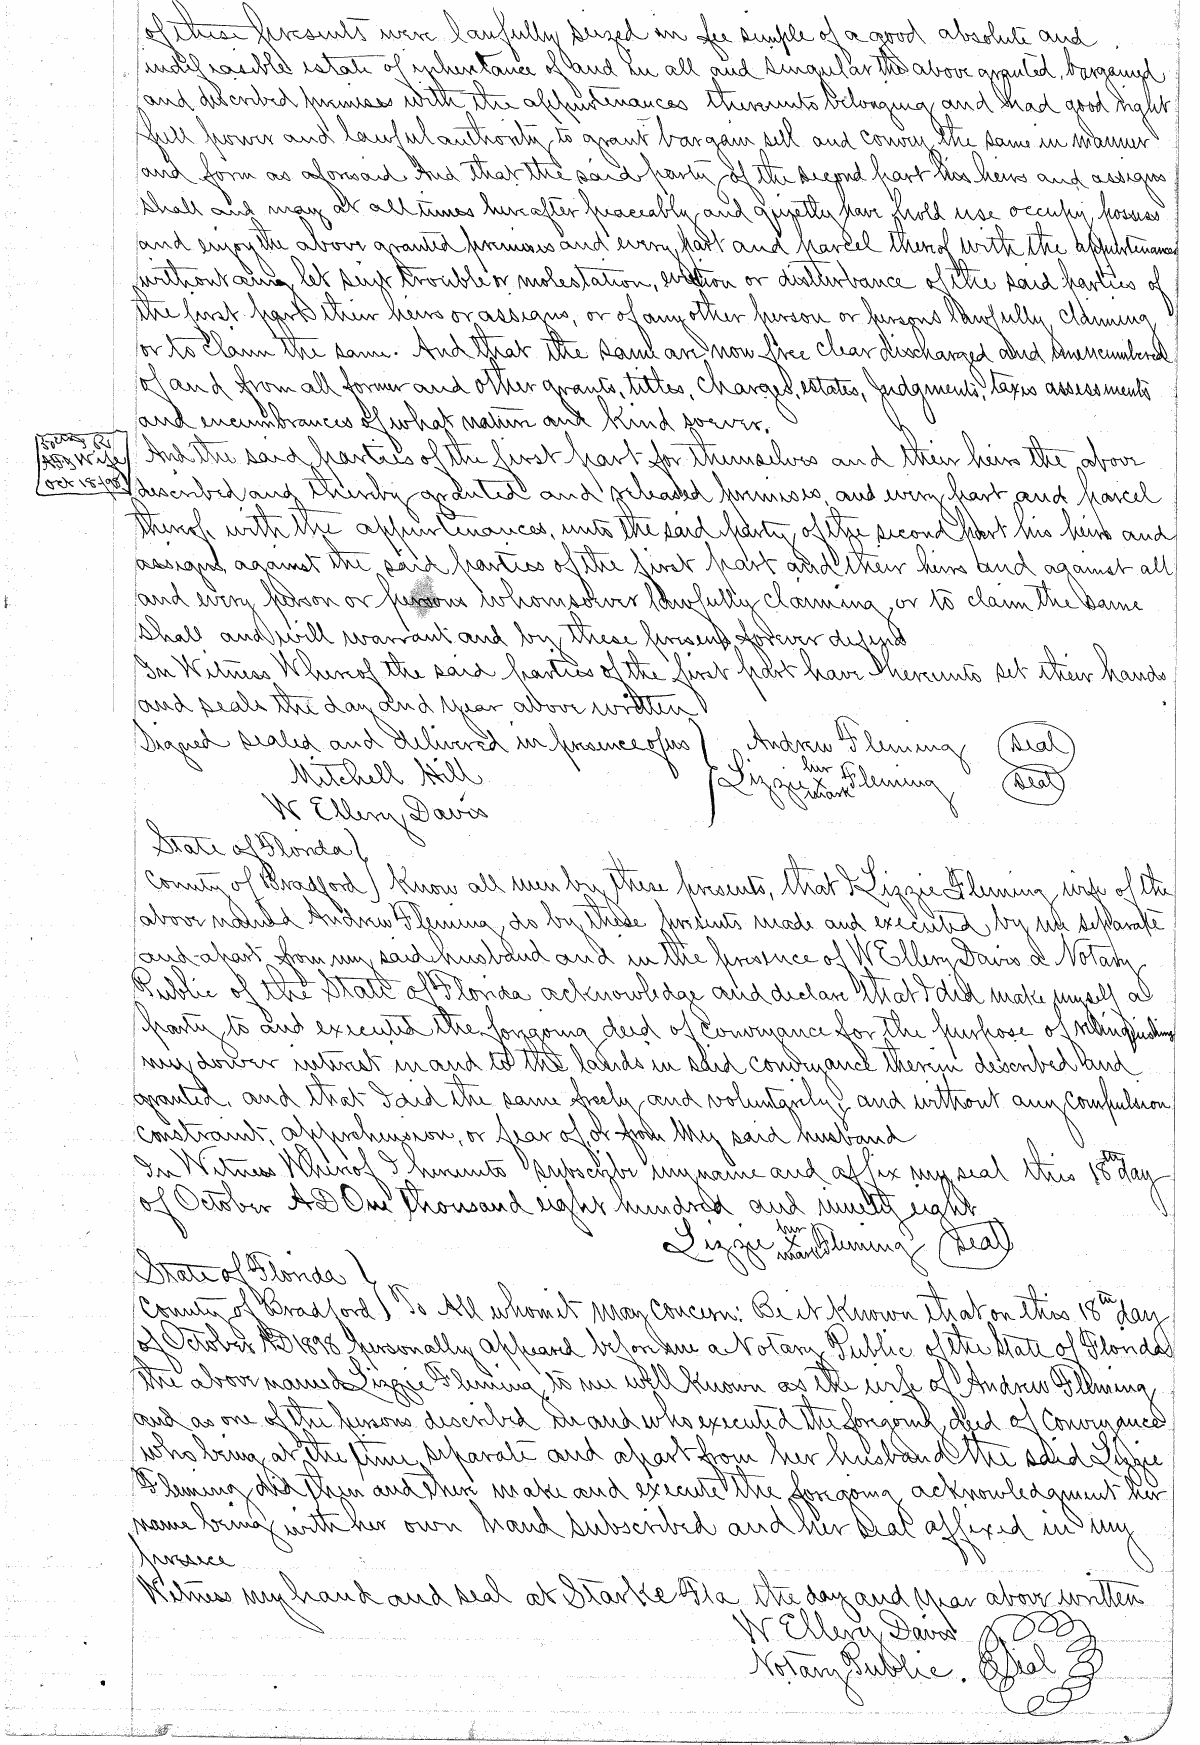 of these presents were lawfully seized in fee simple of a good absolute and
indefeasible estate of inheritance of and in all and singular the above granted, bargained
and described premises with the appurtenances thereunto belonging and had good right
full power and lawful authority to grant bargain sell and convey the same in manner
and form as aforesaid And that the said party of the second part his heirs and assigns
shall and may at all times hereafter peaceably and quietly have hold use occupy, possess
and enjoy the above granted premises and every part and parcel thereof with the appurtenances
without any let suit trouble or molestation, eviction or disturbance of the said parties of
the first part their heirs or assigns, or of any other person or persons lawfully claiming
or to claim the same. And that the same are now free clear discharged and unencumbered
of and from all former and other grants, titles, charges, estates, judgments, taxes assessments
and encumbrances of what nature and kind soever.
And the said parties of the first part for themselves and their heirs the above
Wife
Oct 18/98
described and thereby granted and released premises, and every part and parcel
thereof, with the appurtenances, unto the said party of the second part his heirs and
assigns against the said parties of the first part and their heirs and against all
and every person or persons whomsoever lawfully claiming or to claim the same
shall and will warrant and by these presents forever defend
In Witness Whereof the said parties of the first part have hereunto set their hands
and seals the day and year above written
Signed sealed and delivered in presence of us } Andrew Fleming (Seal)
Mitchell Hill { Lizzie her x mark Fleming (Seal)
W Ellery Davis
State of Florida }
County of Bradford ) Know all men by these presents, that I Lizzie Fleming wife of the
above named Andrew Fleming, do by these presents made and executed by me separate
and apart from my said husband and in the presence of W Ellery Davis a Notary
Public of the State of Florida acknowledge and declare that I did make myself a
party to and executed the forgoing deed of conveyance for the purpose of relinquishing
my dower interest in and to the lands in said conveyance therein described and
granted, and that I did the same freely and voluntarily, and without any compulsion
constraint, apprehension, or fear of or from my said husband
In Witness Whereof I hereunto subscribe my name and affix my seal this 18th day
of October A D One thousand eight hundred and ninety eight
Lizzie her x mark Fleming (Seal)
State of Florida }
County of Bradford ) To All whom it may concern: Be it Known that on this 18th day
of October AD 1898 personally appeared before me a Notary Public of the State of Florida
the above named Lizzie Fleming to me well known as the wife of Andrew Fleming
and as one of the persons described in and who executed the foregoing deed of conveyance
who being at the time separate and apart from her husband the said Lizzie
Fleming did then and there make and execute the foregoing acknowledgment her
name being with her own hand subscribed and her seal affixed in my
presece
Witness my hand and seal at Starke Fla the day and year above written
W Ellery Davis
Notary Public. Seal